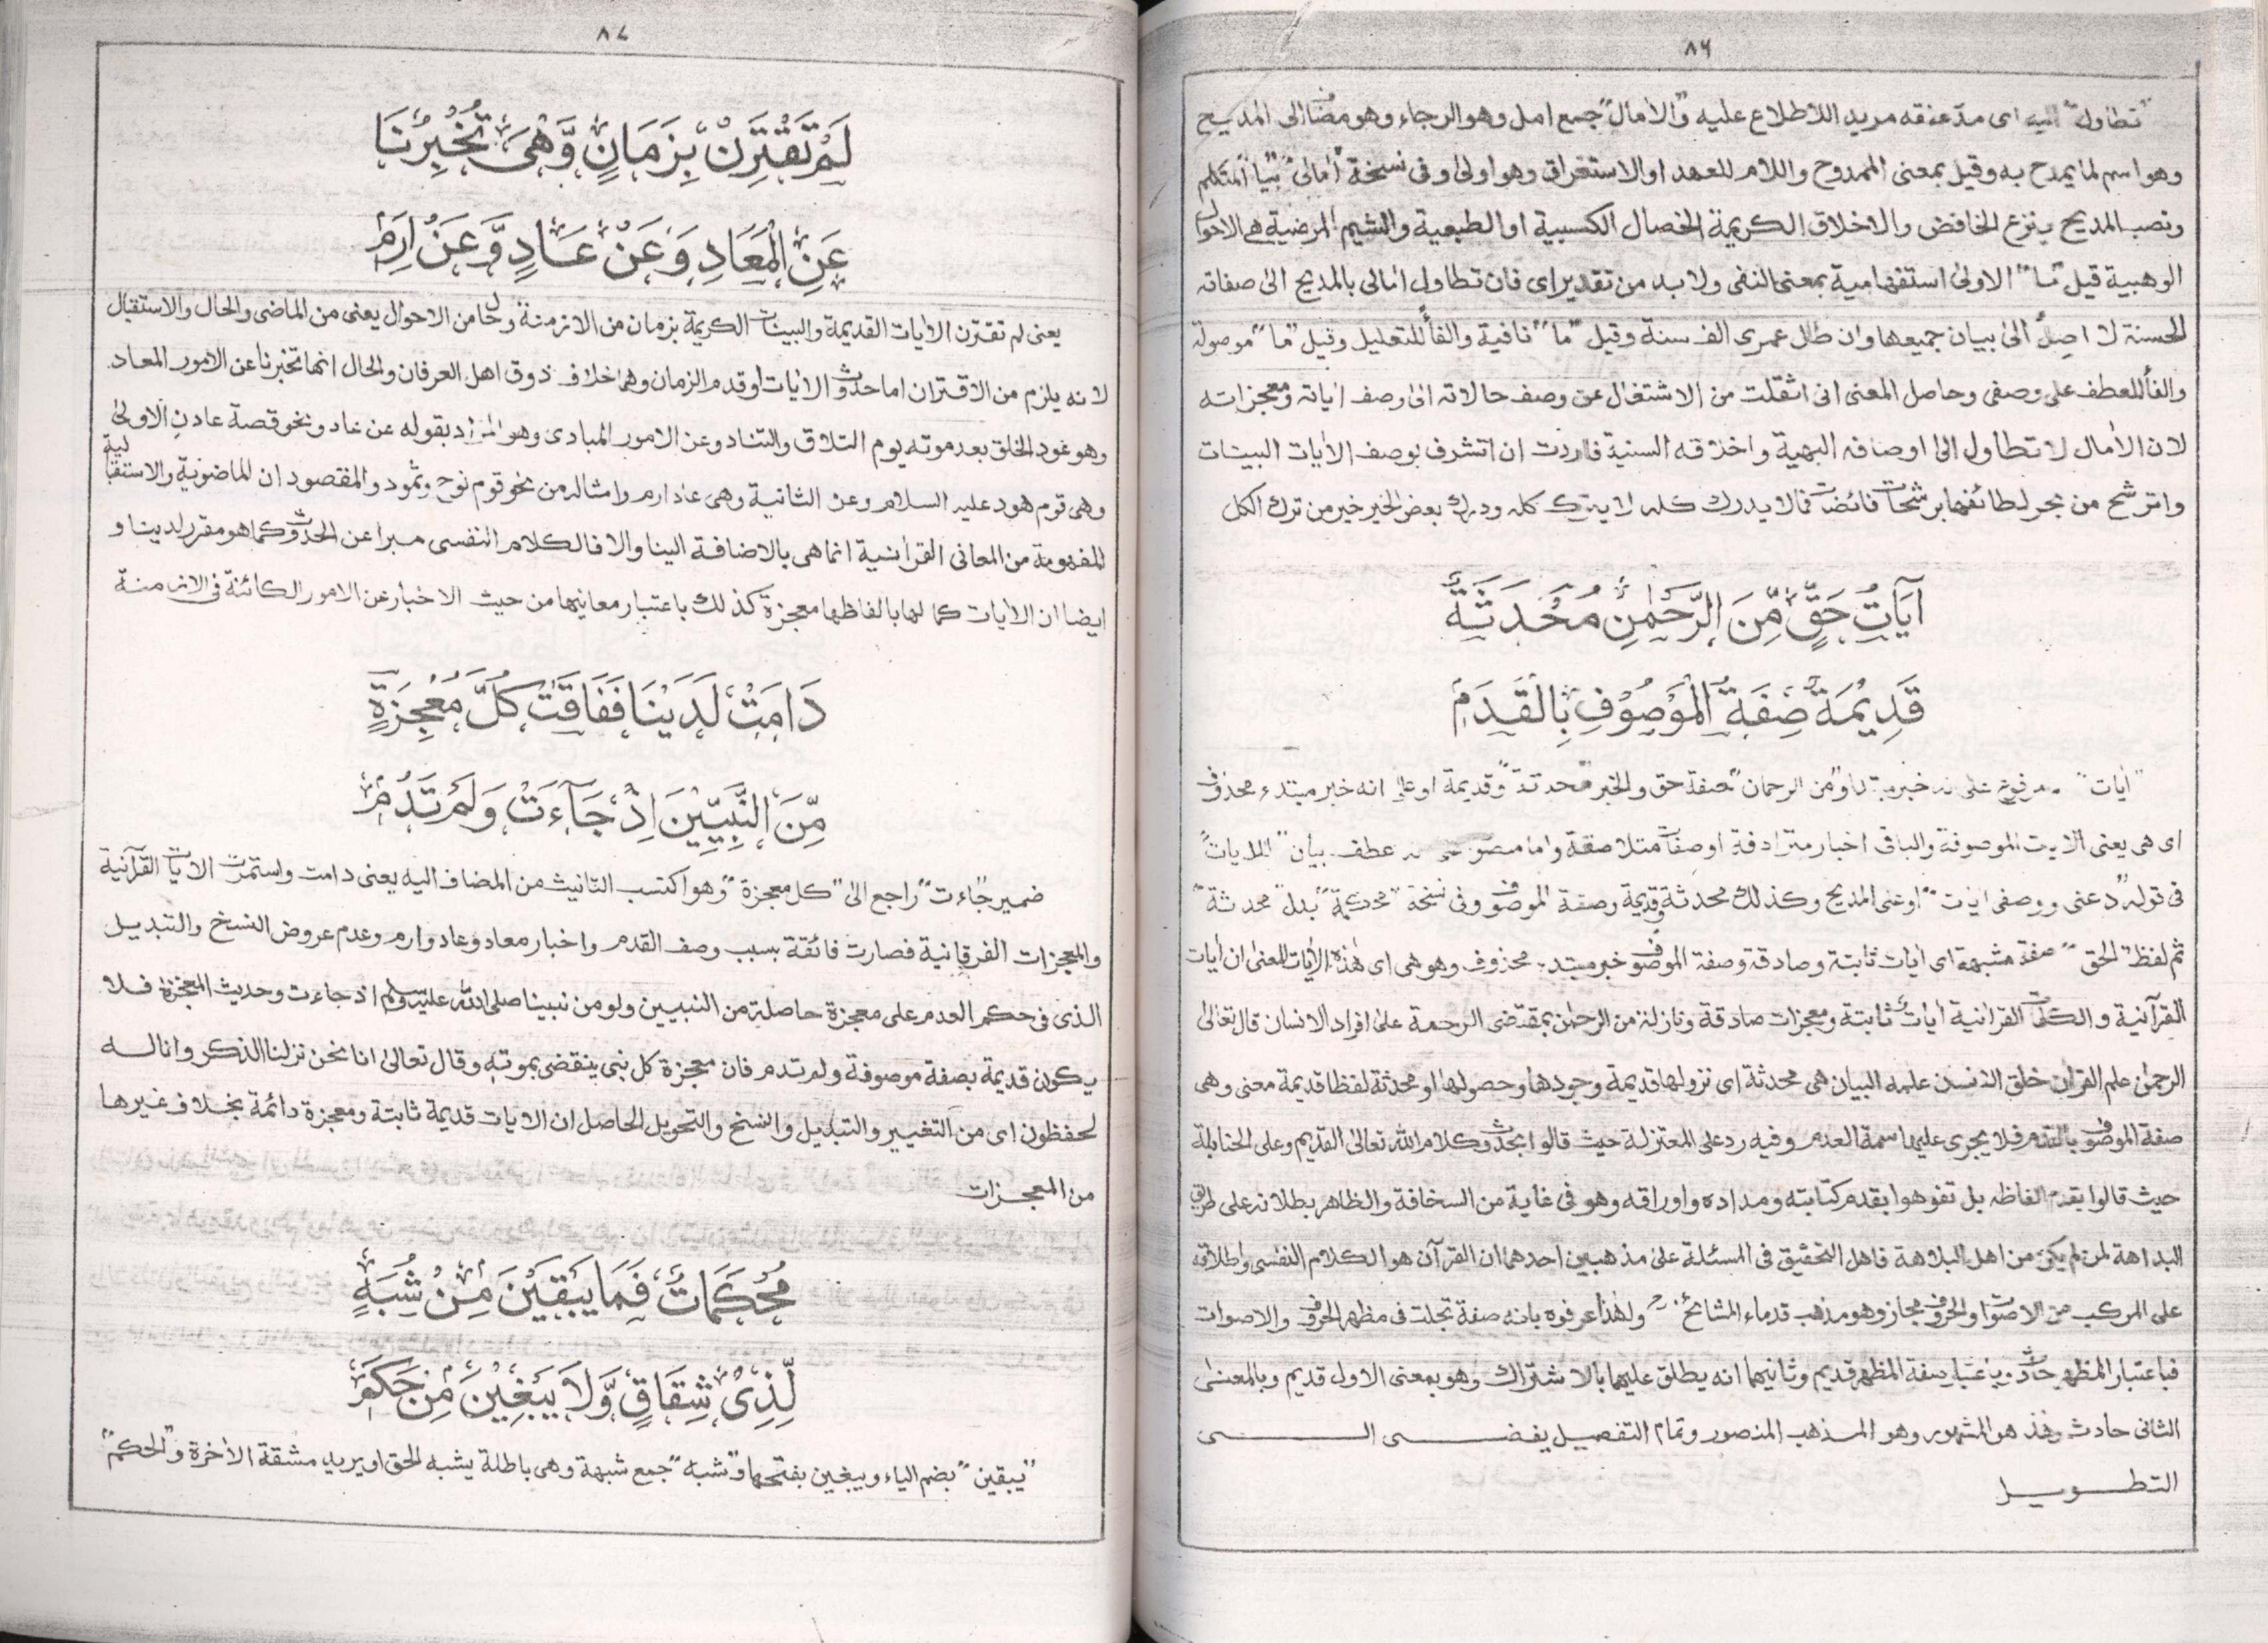 ٨٦
"تطاول" اليه اى مد عنقه مريد الاطلاع عليه "والامال" جمع امل وهو الرجاء وهو مضاف الى المديح
وهو اسم لما يمدح به وقيل بمعنى الممدوح واللام للعهد او الاستغراق وهو اولى وفى نسخة "امالى" بياء المتكلم
ونصب المديح بنزع الخافض والاخلاق الكريمة الخصال الكسبية او الطبعية والشيم المرضية هى الاحوال
الوهبية قيل "ما" الاولى استفهامية بمعنى النفى ولابد من تقدير اى فان تطاول امالى بالمديح الى صفاته
الحسنة لا اصل الى بيان جميعها وان طال عمرى الف سنة وقيل "ما" نافية والفاء للتعليل وقيل "ما" موصولة
والفاء للعطف على وصفى وحاصل المعنى انى اثقلت من الاشتغال عن وصف حالاته الى وصف اياته ومعجزاته
لان الامال لا تطاول الى اوصافه البهية واخلاقه السنية فاردت ان اتشرف بوصف الايات البينات
واترشح من بحر لطائفها برشحات فائضات فما لا يدرك كله لا يترك كله ودرك بعض الخير خير من ترك الكل
آيَاتُ حَقٍّ مِّنَ الرَّحْمٰنِ مُحْدَثَةٌ
قَدِيْمَةٌ صِفَةُ الْمَوْصُوْفِ بِالْقَدَمِ
"ايات" مرفوع على خبر "ومن الرحمان" صفة حق والخبر "محدثة" وقديمة او على انه خبر مبتدء محذوف
اى هى يعنى الايات الموصوفة والباقى اخبار مترادفة او صفات متلاصقة واما عطف بيان "للايات"
فى قوله "دعنى ووصفى ايات" اوعنى المديح وكذلك محدثة وقديمة وصفة الموصوف وفى نسخة "محكمة" بدل "محدثة"
ثم لفظ "الحق" صفة مشبهة اى ايات ثابتة وصادقة وصفة الموصوف خبر مبتدء محذوف وهو هى اى هذه الايات المعنى ان ايات
القرآنية والكلمات القرانية ايات ثابتة ومعجزات صادقة ونازلة من الرحمن بمقتضى الرحمة على افراد الانسان قال تعالى
الرحمن علم القران خلق الانسان علمه البيان هى محدثة اى نزولها قديمة وجودها وحصولها او محدثة لفظا قديمة معنى وهى
صفة الموصوف بالقدم فلا يجرى عليها سمة العدم وفيه رد على المعتزلة حيث قالوا بحدوث كلام الله تعالى القديم وعلى الحنابلة
حيث قالوا بقدم الفاظه بل تفوهوا بقدم كتابته ومداده واوراقه وهو فى غاية من السخافة والظاهر بطلانه على طريق
البداهة لمن لم يكن من اهل البلاهة فاهل التحقيق فى المسئلة على مذهبين احدهما ان القرآن هو الكلام النفسى واطلاقه
على المركب من الاصوات والحروف مجاز وهو مذهب قدماء المشائخ ولهذا عرفوه بانه صفة تجلت فى مظهر الحروف والاصوات
فباعتبار المظهر حادث وباعتبار صفة المظهر قديم وثانيهما انه يطلق عليهما بالاشتراك وهو بمعنى الاول قديم وبالمعنى
الثانى حادث وهذا هو المشهور وهو المذهب المنصور وتمام التفصيل يفضى الى
التطويل
٨٧
لَمْ تَقْتَرِنْ بِزَمَانٍ وَّهْيَ تُخْبِرُنَا
عَنِ الْمَعَادِ وَعَنْ عَادٍ وَّعَنْ اِرَمِ
يعنى لم تقترن الايات القديمة والبينات الكريمة بزمان من الازمنة وحال من الاحوال يعنى من الماضى والحال والاستقبال
لانه يلزم من الاقتران اما حدوث الايات او قدم الزمان وهما خلاف ذوق اهل العرفان والحال انها تخبرنا عن الامور المعاد
وهو عود الخلق بعد موته يوم التلاق والتناد وعن الامور المبادى وهو المراد بقوله عن عاد ونحو قصة عادن الاولى
وهى قوم هود عليه السلام وعن الثانية وهى عاد ارم وامثاله من نحو قوم نوح وثمود والمقصود ان الماضوية والاستقبالية
المفهومة من المعانى القرانية انما هى بالاضافة الينا والا فالكلام النفسى مبرا عن الحدوث كما هو مقرر لدينا و
ايضا ان الايات كما لها بالفاظها معجزة كذلك باعتبار معانيها من حيث الاخبار عن الامور الكائنة فى الازمنة
دَامَتْ لَدَيْنَا فَفَاقَتْ كُلَّ مُعْجِزَةٍ
مِّنَ النَّبِيِّيْنَ اِذْ جَآءَتْ وَلَمْ تَدُمْ
ضمير "جاءت" راجع الى "كل معجزة" وهو اكتسب التانيث من المضاف اليه يعنى دامت واستمرت الايات القرآنية
والمعجزات الفرقانية فصارت فائقة بسبب وصف القدم واخبار معاد وعاد وارم وعدم عروض النسخ والتبديل
الذى فى حكم العدم على معجزة حاصلة من النبيين ولو من نبينا صلى الله عليه وسلم اذ جاءت وحديث المعجزة فلا
يكون قديمة بصفة موصوفة ولم تدم فان معجزة كل نبى ينقضى بموته وقال تعالى انا نحن نزلنا الذكر وانا له
لحفظون اى من التغيير والتبديل والنسخ والتحويل الحاصل ان الايات قديمة ثابتة ومعجزة دائمة بخلاف غيرها
من المعجزات
مُحْكَمَاتٌ فَمَا يُبْقِيْنَ مِنْ شُبَهٍ
لِّذِىْ شِقَاقٍ وَّلَا يَبْغِيْنَ مِنْ حَكَمِ
"يبقين" بضم الياء ويبغين بفتحها و"شبه" جمع شبهة وهى باطلة يشبه الحق او يريد مشقة الاخرة و"الحكم"